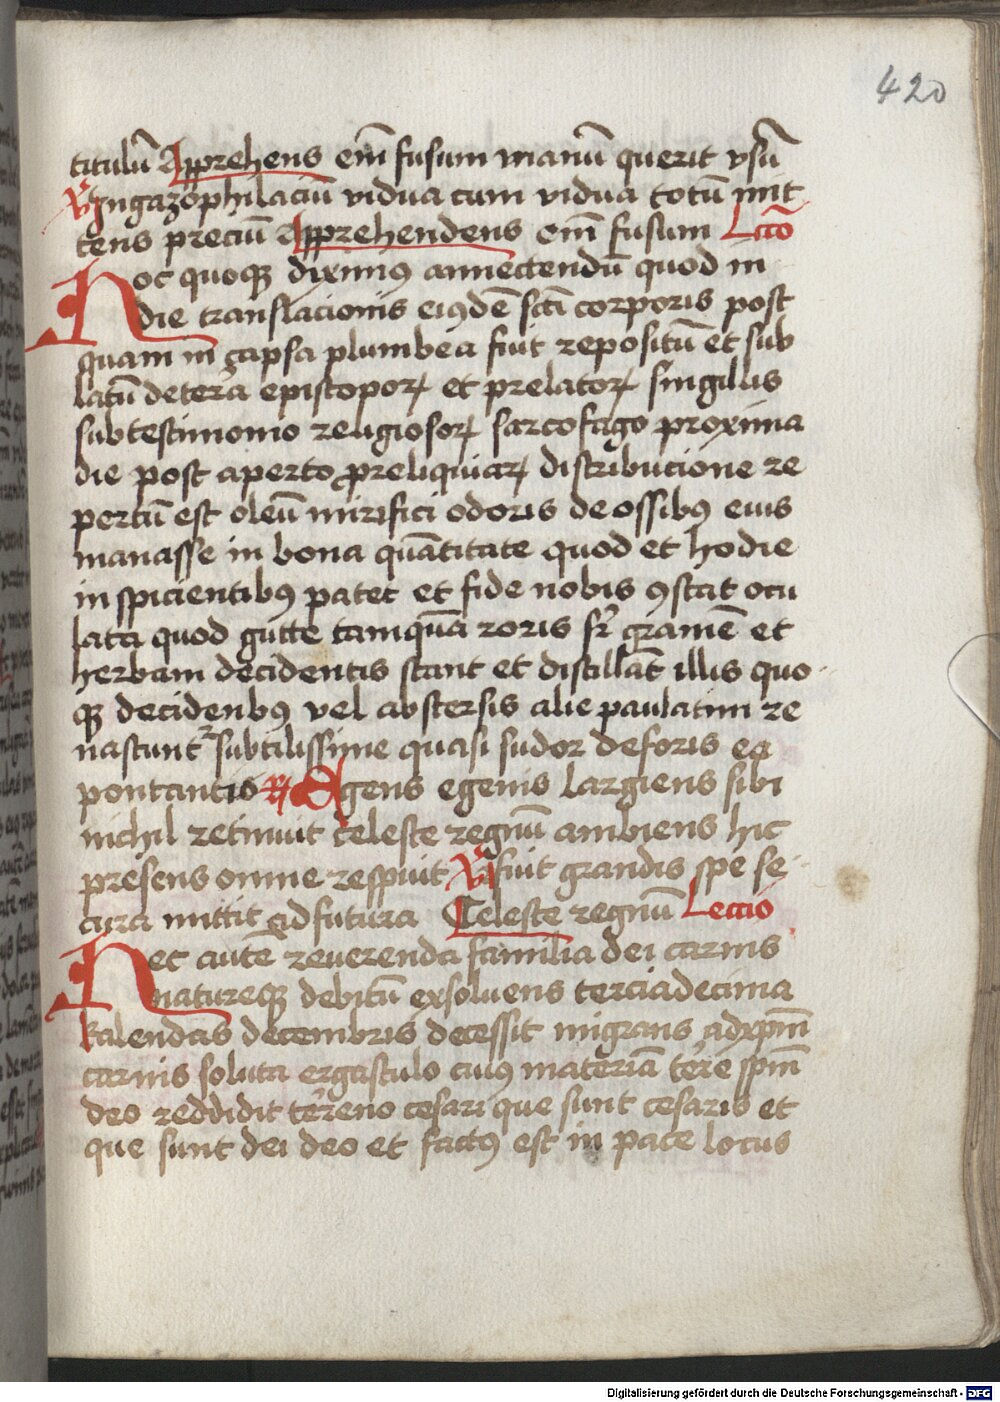 420
titulū Apprehens em̄ fusum manū querit vsū
℣ Ingazophilaciū vidua cum vidua totū mit
tens preciū Apprehendens em̄ fusum Lcō
Hoc quoqꝫ diximꝯ annectendū quod in
die translacionis eiꝯdē scī corporis post
quam in capsa plumbea fuit repositū et sub
latū de terā episcopoꝝ et prelatoꝝ singillis
sub testimonio religiosoꝝ sarcofago proxima
die post aperto p reliquiaꝝ distributione re
pertū est oleū mirifici odoris de ossibꝯ eius
manasse in bona quātitate quod et hodie
inspicientibꝯ patet et fide nobis ꝯstat ocu
lata quod gutte tamquā roris sr̄ gramē et
herbam decidentis stant et distillāt illis quo
qꝫ decidenbꝯ vel abstersis alie paulatim re
nascunt᷑ subtilissime quasi sudor deforis ea
pontantio ℟ Egens egenis largiens sibi
nichil retinuit celeste regnū ambiens hic
presens omne respuit ℣ fuit grandis spe se
cura mittit ad futura Celeste regnū Leccio
Hec autē reverenda familia dei carnis
natureqꝫ debitū exsoluens terciadecima
kalendas decembris decessit migrans ad xpm̄
carnis soluta ergastulo cuiꝯ materiā tere spm̄
deo reddidit terreno cesari que sunt cesaris et
que sunt dei deo et factꝯ est in pace locus
Digitalisierung gefördert durch die Deutsche Forschungsgemeinschaft - DFG